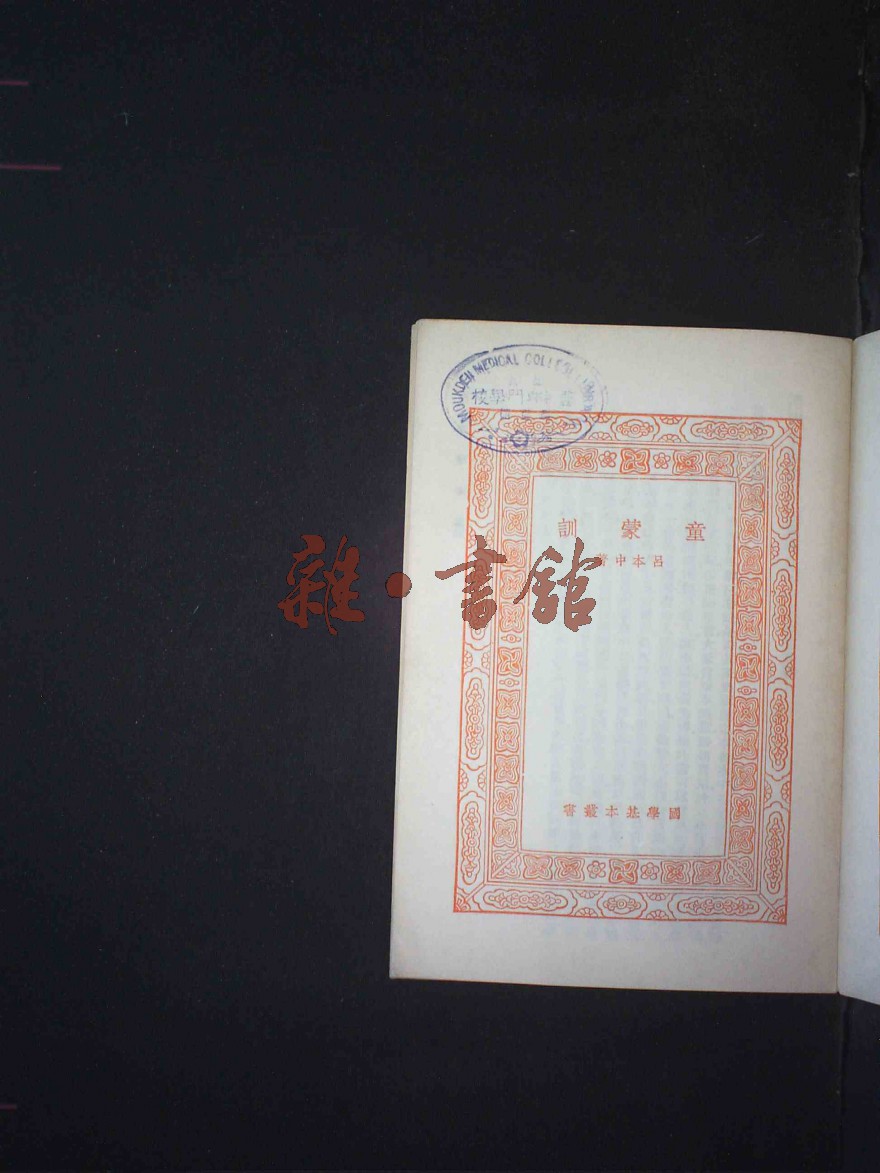 MOUKDEN MEDICAL COLLEGE
門學校
童蒙訓
呂本中著
雜·書館
國學基本叢書